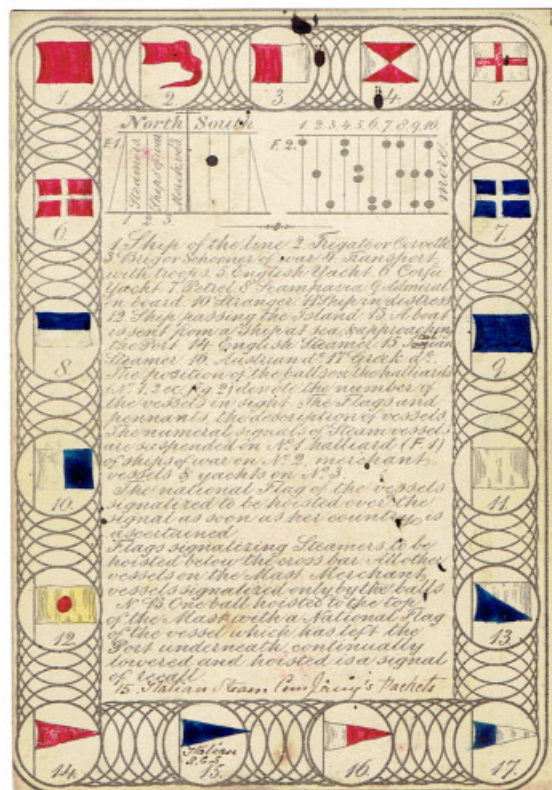 1. 2. 3. 4. 5.
North South
1. 2. 3. 4. 5. 6. 7. 8. 9. 10.
F.1.
Steamers
Ships of war
Merch. ves
F. 2.
more.
1 2 3
6. 7.
1 Ship of the line 2 Frigate or Corvette
3 Brig or Schooner of war 4 Transport
with troops 5 English Yacht 6 Corfu
Yacht 7 Petrel 8 Scampavia 9 Admiral
on board 10 Stranger 11 Ship in distress
12 Ship passing the Island 13 A boat
is sent from a ship at sea, & approaching
the Port 14 English Steamer 15
Steamer 16 Austrian do. 17 Greek do.
The position of the balls on the halliards
No. 1, 2 &c. fig 2) denote the number of
the vessels in sight. The Flags and
pennants the description of vessels
The numeral signals of Steam vessels
are suspended in No. 1 halliard (F. 1)
of ships of war on No. 2, merchant
vessels & yachts on No. 3
The national Flag of the vessels
signalized to be hoisted over the
signal as soon as her country is
ascertained
Flags signalizing Steamers to be
hoisted below the cross bar All other
vessels on the Mast Merchant
vessels signalized only by the balls
N B One ball hoisted to the top
of the Mast with a National Flag
of the vessel which has left the
Port underneath continually
lowered and hoisted is a signal
of recall
15. Italian Steam Company's Packets
8. 9.
10. 11.
12. 13.
14. Italian
15. 16. 17.